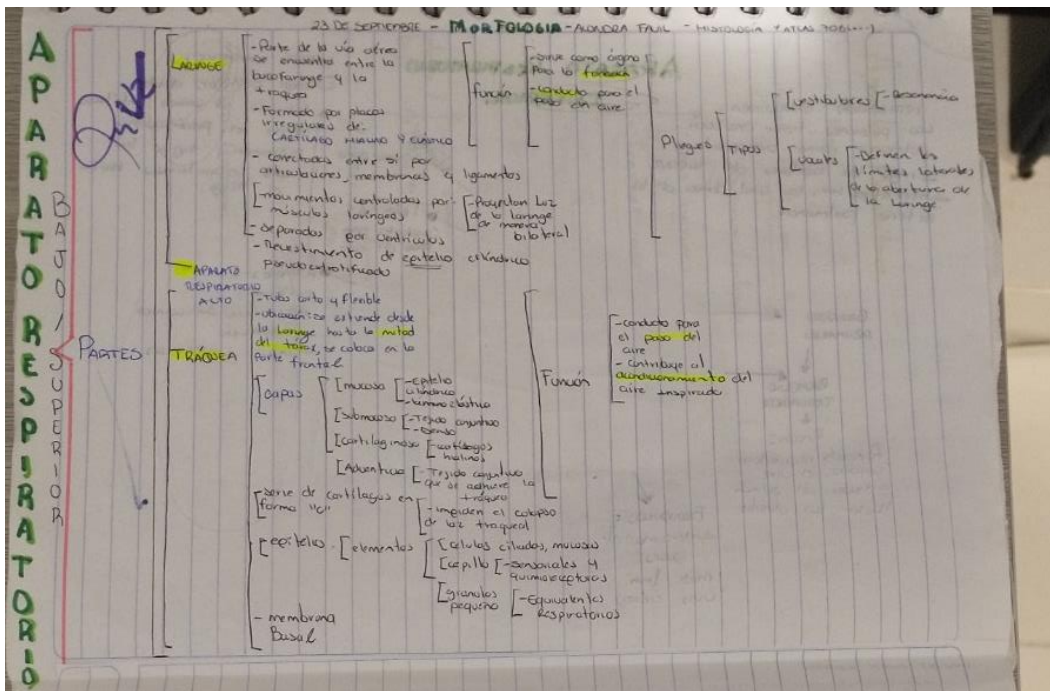 23 DE SEPTIEMBRE - MORFOLOGIA - ALONDRA FAUL - HISTOLOGÍA Y ATLAS
APARATO RESPIRATORIO
BAJO / SUPERIOR
PARTES
LARINGE
- Parte de la vía aérea
se encuentra entre la
bucofaringe y la
traquea
- Formado por placas
irregulares de:
CARTÍLAGO HIALINO Y ELÁSTICO
- conectadas entre sí por
articulaciones, membranas y ligamentos
movimientos controlados por:
músculos laríngeos
- Separados por ventrículos
- Revestimiento de epitelio cilíndrico
pseudoestratificado
Función
- Sirve como órgano
para la fonación
- conducto para el
paso de aire
- Proyectan Luz
de la Laringe
de manera
bilateral
Pliegues
Tipos
vestibulares
- Resonancia
vocales
- Definen los
límites laterales
de la abertura de
la Laringe
APARATO
RESPIRATORIO
ALTO
TRÁQUEA
- Tubo corto y flexible
- ubicación: se extiende desde
la Laringe hasta la mitad
del tórax, se coloca en la
parte frontal
Capas
mucosa
- Epitelio
cilíndrico
- lamina elástica
Submucosa
- Tejido conjuntivo
- Denso
cartilaginosa
- cartílagos
hialinos
Adventicia
- Tejido conjuntivo
que se adhiere la
tráquea
serie de cartílagos en
forma "c"
- impiden el colapso
de luz traqueal
epitelio
elementos
células ciliadas, mucosas
cepillo
- sensoriales y
quimioreceptoras
granulos
pequeño
- Equivalentes
Respiratorios
- membrana
Basal
Función
- conducto para
el paso del
aire
- contribuye al
acondicionamiento del
aire inspirado